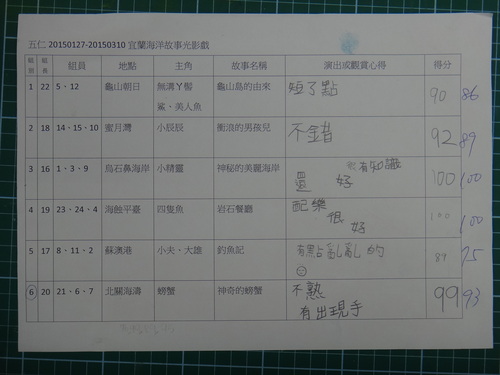 五仁 20150127-20150310 宜蘭海洋故事光影戲
組別 組長 組員 地點 主角 故事名稱 演出或觀賞心得 得分
1 22 5、12 龜山朝日 無溝丫髻鯊、美人魚 龜山島的由來 短了點 90 86
2 18 14、15、10 蜜月灣 小辰辰 衝浪的男孩兒 不錯 92 89
3 16 1、3、9 烏石鼻海岸 小精靈 神秘的美麗海岸 還好 有知識 100 100
4 19 23、24、4 海蝕平臺 四隻魚 岩石餐廳 配樂很好 100 100
5 17 8、11、2 蘇澳港 小夫、大雄 釣魚記 有點亂亂的 89 75
6 20 21、6、7 北關海濤 螃蟹 神奇的螃蟹 不熟 有出現手 99 93